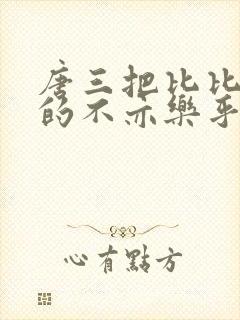 唐三把比比
的不亦樂乎
心有點方